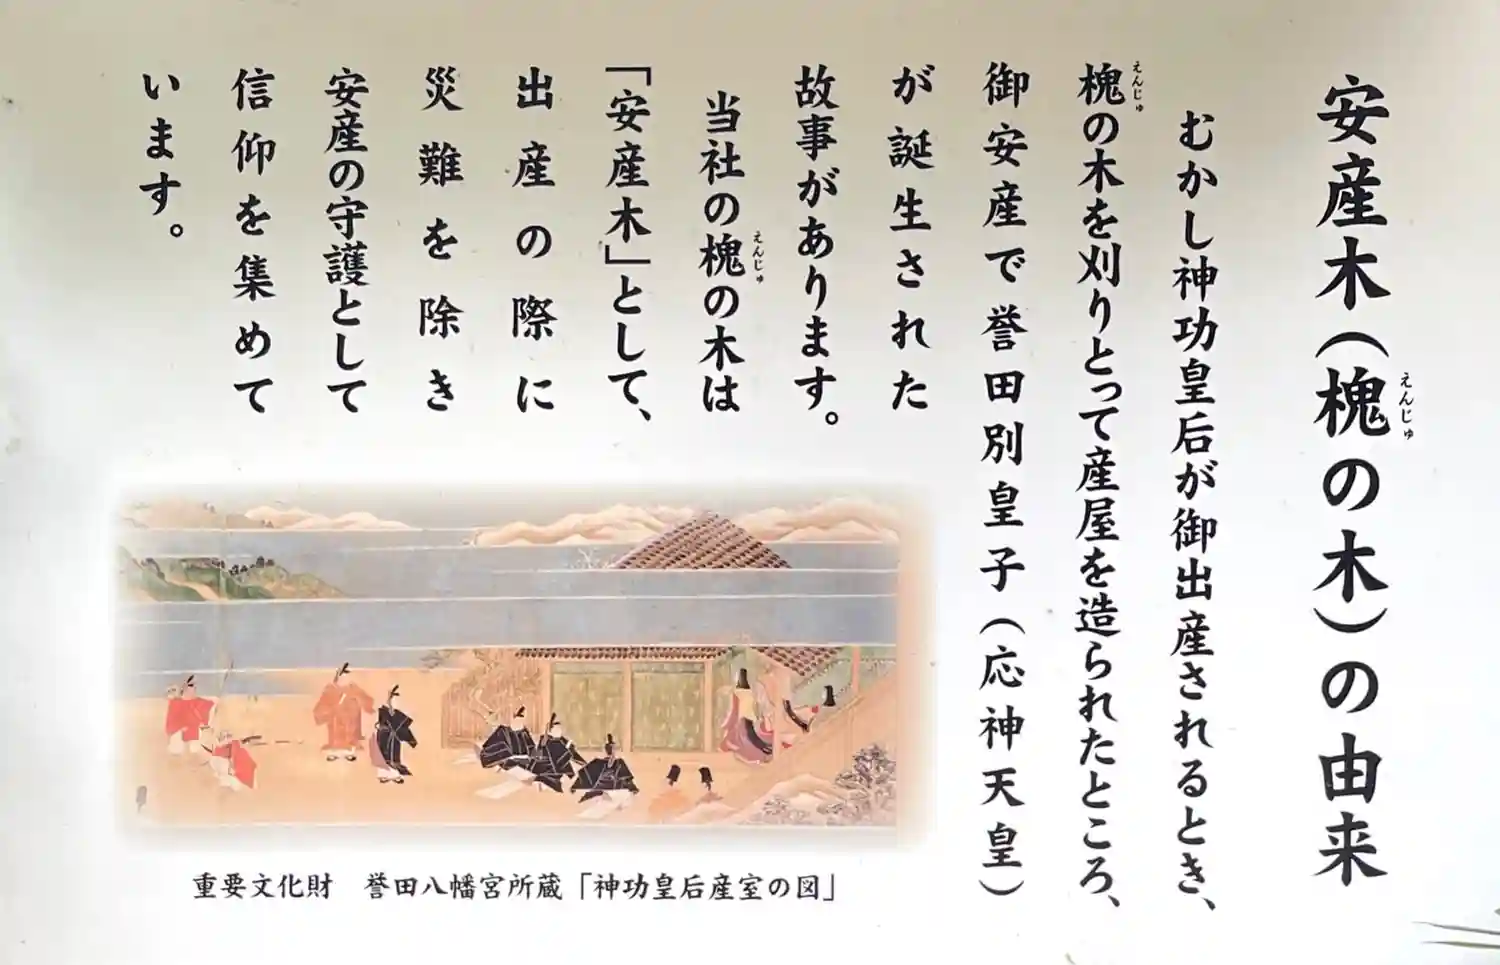 安産木(槐の木)の由来
えんじゅ
むかし神功皇后が御出産されるとき、
槐の木を刈りとって産屋を造られたところ、
えんじゅ
御安産で誉田別皇子(応神天皇)
が誕生された
故事があります。
当社の槐の木は
えんじゅ
「安産木」として、
出産の際に
災難を除き
安産の守護として
信仰を集めて
います。
重要文化財　誉田八幡宮所蔵「神功皇后産室の図」